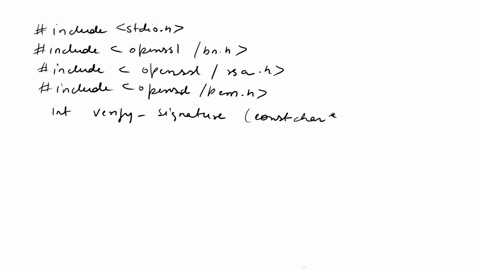 #include <stdio.h>
#include < openssl /bn.h>
#include < openssl / rsa.h>
#include <openssl /pem.h>
int verify_ signature (const char *